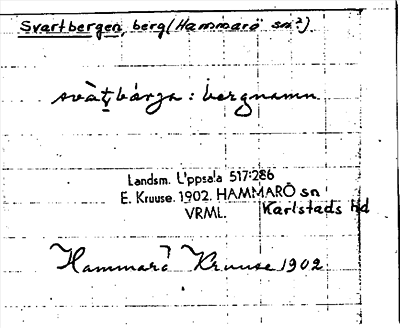 Svartbergen, berg (Hammarö sn?)
svàtbárja : bergnamn.
Landsm. Uppsala 517:286
E. Kruuse. 1902. HAMMARÖ sn
VRML. Karlstads hd
Hammarö Kruuse 1902